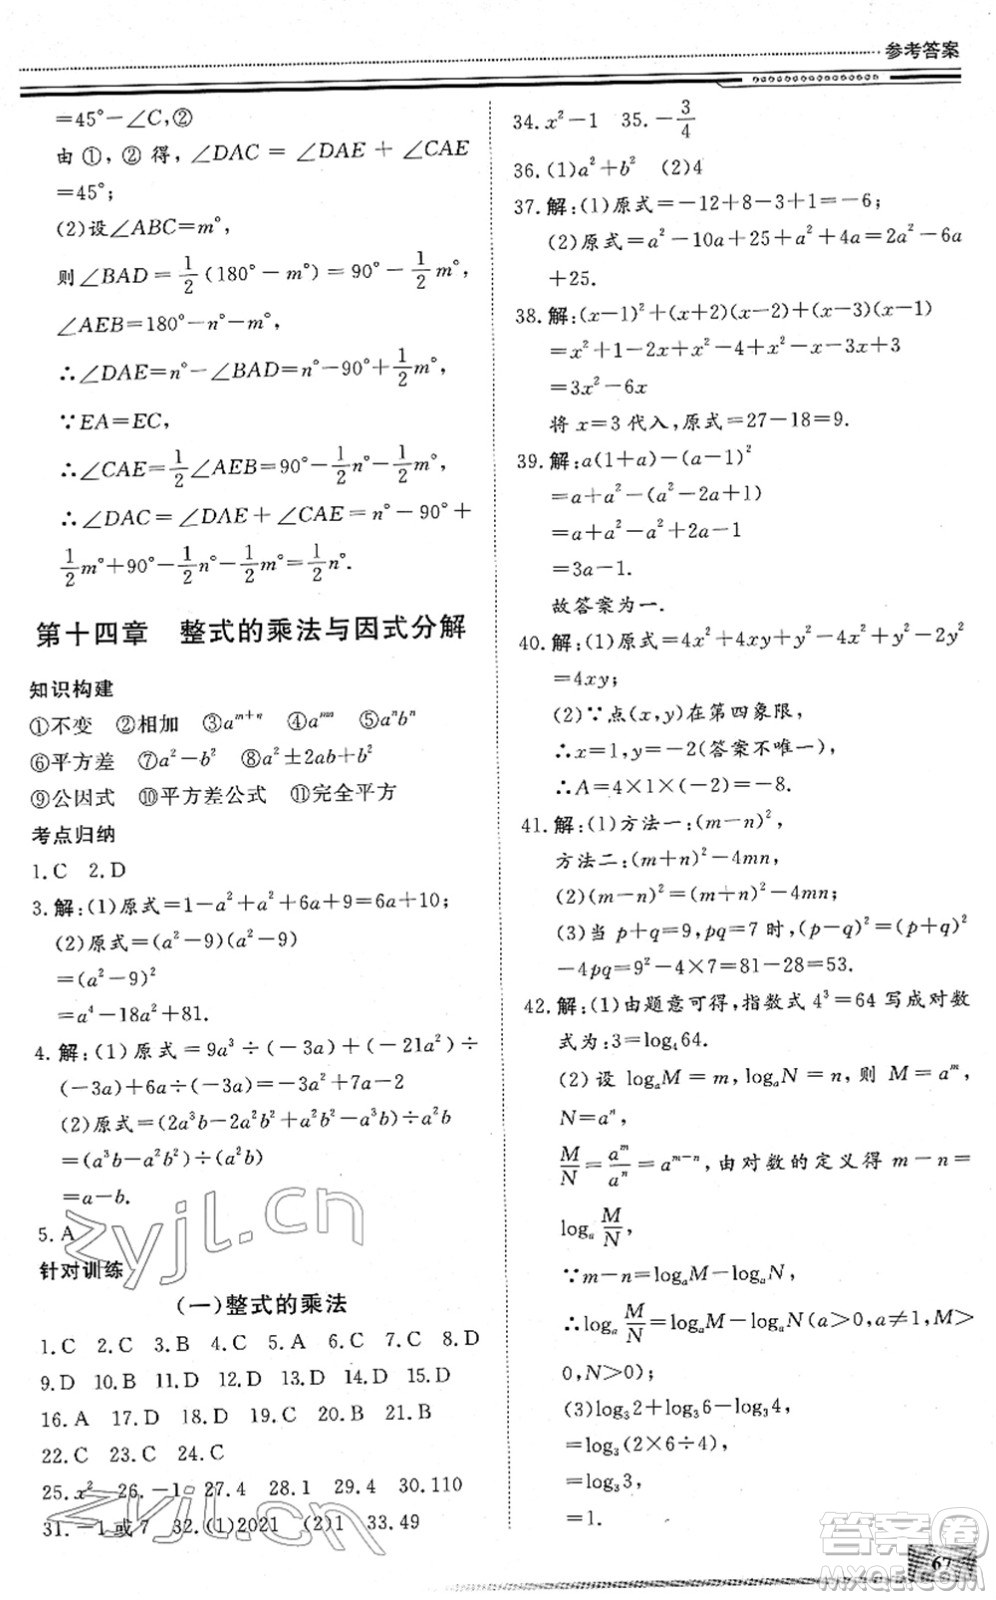 参考答案
=45°-∠C,②
由①,②得,∠DAC=∠DAE+∠CAE
=45°;
(2)设∠ABC=m°,
则∠BAD=1/2(180°-m°)=90°-1/2m°,
∠AEB=180°-n°-m°,
∴∠DAE=n°-∠BAD=n°-90°+1/2m°,
∵EA=EC,
∴∠CAE=1/2∠AEB=90°-1/2n°-1/2m°,
∴∠DAC=∠DAE+∠CAE=n°-90°+
1/2m°+90°-1/2n°-1/2m°=1/2n°.
第十四章 整式的乘法与因式分解
知识构建
①不变 ②相加 ③a^(m+n) ④a^(mn) ⑤a^n b^n
⑥平方差 ⑦a²-b² ⑧a²±2ab+b²
⑨公因式 ⑩平方差公式 ⑪完全平方
考点归纳
1.C 2.D
3.解:(1)原式=1-a²+a²+6a+9=6a+10;
(2)原式=(a²-9)(a²-9)
=(a²-9)²
=a⁴-18a²+81.
4.解:(1)原式=9a³÷(-3a)+(-21a²)÷
(-3a)+6a÷(-3a)=-3a²+7a-2
(2)原式=(2a³b-2a²b²+a²b²-a³b)÷a²b
=(a³b-a²b²)÷(a²b)
=a-b.
5.A
针对训练
(一)整式的乘法
1.C 2.C 3.B 4.C 5.A 6.C 7.C 8.D
9.D 10.D 11.D 12.B 13.D 14.D 15.D
16.A 17.D 18.D 19.C 20.B 21.B
22.C 23.C 24.C
25.x² 26.-1 27.4 28.1 29.4 30.110
31.-1或7 32.(1)2021 (2)1 33.49
34.x²-1 35.-3/4
36.(1)a²+b² (2)4
37.解:(1)原式=-12+8-3+1=-6;
(2)原式=a²-10a+25+a²+4a=2a²-6a
+25.
38.解:(x-1)²+(x+2)(x-2)+(x-3)(x-1)
=x²+1-2x+x²-4+x²-4x+3
=3x²-6x
将x=3代入,原式=27-18=9.
39.解:a(1+a)-(a-1)²
=a+a²-(a²-2a+1)
=a+a²-a²+2a-1
=3a-1.
故答案为一.
40.解:(1)原式=4x²+4xy+y²-4x²+y²-2y²
=4xy;
(2)∵点(x,y)在第四象限,
∴x=1,y=-2(答案不唯一),
∴A=4×1×(-2)=-8.
41.解:(1)方法一:(m-n)²,
方法二:(m+n)²-4mn,
(2)(m-n)²=(m+n)²-4mn;
(3)当p+q=9,pq=7时,(p-q)²=(p+q)²
-4pq=9²-4×7=81-28=53.
42.解:(1)由题意可得,指数式4³=64写成对数
式为:3=log₄64.
(2)设logₐM=m,logₐN=n,则M=a^m,
N=a^n,
M/N=a^m/a^n=a^(m-n),由对数的定义得m-n=
logₐM/N,
∵m-n=logₐM-logₐN,
∴logₐM/N=logₐM-logₐN(a>0,a≠1,M>
0,N>0);
(3)log₃2+log₃6-log₃4,
=log₃(2×6÷4),
=log₃3,
=1.
67
zyjl.cn
zyjl.cn
答案圈
MXQE.COM